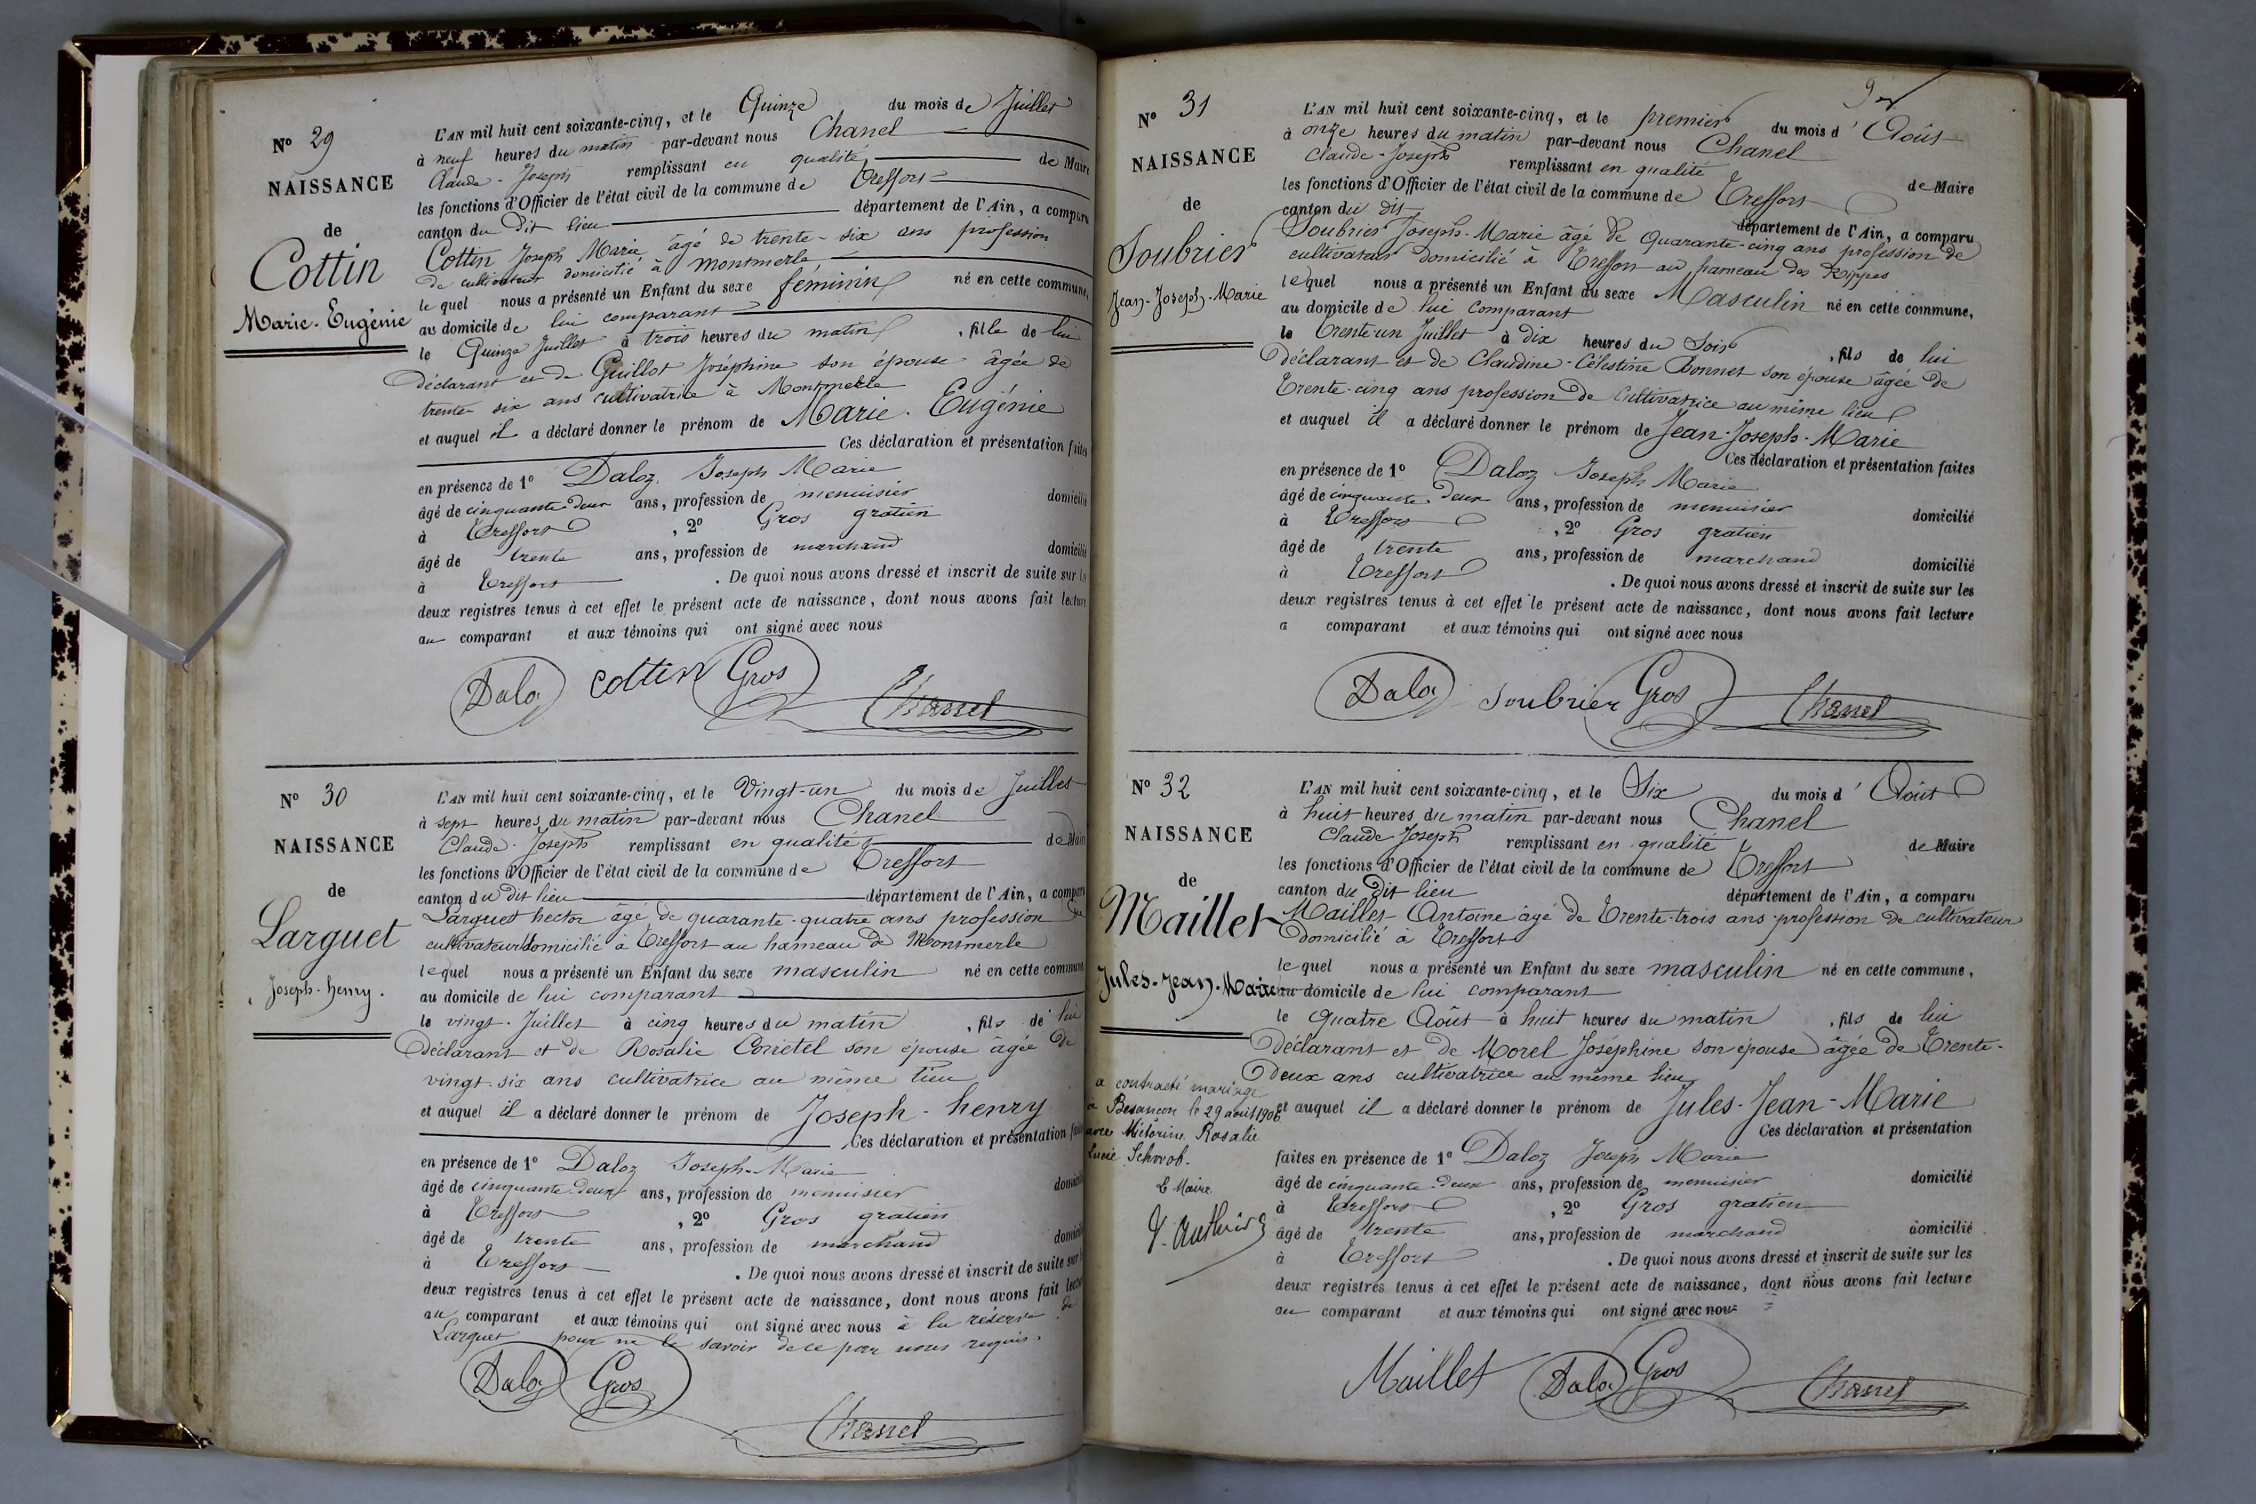 N° 29
NAISSANCE
de
Cottin
Marie-Eugénie
L'AN mil huit cent soixante-cinq, et le Quinze du mois de Juillet
à neuf heures du matin par-devant nous Chanel
Claude-Joseph remplissant en qualité de Maire
les fonctions d'Officier de l'état civil de la commune de Treffort
canton du dit lieu département de l'Ain, a comparu
Cottin Joseph Marie âgé de trente-six ans profession
de cultivateur domicilié à Montmerle
lequel nous a présenté un Enfant du sexe féminin né en cette commune,
au domicile de lui comparant
le Quinze Juillet à trois heures du matin, fille de lui
déclarant et de Guillot Joséphine son épouse âgée de
trente-six ans cultivatrice à Montmerle
et auquel il a déclaré donner le prénom de Marie-Eugénie
Ces déclaration et présentation faites
en présence de 1° Daloz Joseph Marie
âgé de cinquante-deux ans, profession de menuisier domicilié
à Treffort, 2° Gros gratien
âgé de trente ans, profession de marchand domicilié
à Treffort. De quoi nous avons dressé et inscrit de suite sur les
deux registres tenus à cet effet le présent acte de naissance, dont nous avons fait lecture
au comparant et aux témoins qui ont signé avec nous
Daloz cottin Gros Chanel
N° 30
NAISSANCE
de
Larguet
Joseph-henry.
L'AN mil huit cent soixante-cinq, et le Vingt-un du mois de Juillet
à sept heures du matin par-devant nous Chanel
Claude-Joseph remplissant en qualité de Maire
les fonctions d'Officier de l'état civil de la commune de Treffort
canton du dit lieu département de l'Ain, a comparu
Larguet hector âgé de quarante-quatre ans profession de
cultivateur domicilié à Treffort au hameau de Montmerle
lequel nous a présenté un Enfant du sexe masculin né en cette commune
au domicile de lui comparant
le vingt-Juillet à cinq heures du matin, fils de lui
déclarant et de Rosalie son épouse âgée de
vingt-six ans cultivatrice au même lieu
et auquel il a déclaré donner le prénom de Joseph-henry
Ces déclaration et présentation faites
en présence de 1° Daloz Joseph-Marie
âgé de cinquante-deux ans, profession de menuisier domicilié
à Treffort, 2° Gros gratien
âgé de trente ans, profession de marchand domicilié
à Treffort. De quoi nous avons dressé et inscrit de suite sur les
deux registres tenus à cet effet le présent acte de naissance, dont nous avons fait lecture
au comparant et aux témoins qui ont signé avec nous à la réserve de
Larguet pour ne le savoir de ce par nous requis.
Daloz Gros
Chanel
N° 31
NAISSANCE
de
Soubrier
Jean-Joseph-Marie
L'AN mil huit cent soixante-cinq, et le premier du mois d'Août
à onze heures du matin par-devant nous Chanel
Claude-Joseph remplissant en qualité de Maire
les fonctions d'Officier de l'état civil de la commune de Treffort
canton du dit département de l'Ain, a comparu
Soubrier Joseph-Marie âgé de quarante-cinq ans profession de
cultivateur domicilié à Treffort au hameau des Rippes
lequel nous a présenté un Enfant du sexe Masculin né en cette commune,
au domicile de lui comparant
le trente-un Juillet à dix heures du Soir, fils de lui
déclarant et de Claudine-Célestine Bonnet son épouse âgée de
trente-cinq ans profession de Cultivatrice au même lieu
et auquel il a déclaré donner le prénom de Jean-Joseph-Marie
Ces déclaration et présentation faites
en présence de 1° Daloz Joseph Marie
âgé de cinquante-deux ans, profession de menuisier domicilié
à Treffort, 2° Gros gratien
âgé de trente ans, profession de marchand domicilié
à Treffort. De quoi nous avons dressé et inscrit de suite sur les
deux registres tenus à cet effet le présent acte de naissance, dont nous avons fait lecture
a comparant et aux témoins qui ont signé avec nous
Daloz Soubrier Gros Chanel
N° 32
NAISSANCE
de
Maillet
Jules-Jean-Marie
a contracté mariage
à Besançon le 29 août 1906
avec Victorine Rosalie
Lucie Schwob.
Le Maire
L'AN mil huit cent soixante-cinq, et le Six du mois d'Août
à huit heures du matin par-devant nous Chanel
Claude Joseph remplissant en qualité de Maire
les fonctions d'Officier de l'état civil de la commune de Treffort
canton du dit lieu département de l'Ain, a comparu
Maillet Antoine âgé de trente-trois ans profession de cultivateur
domicilié à Treffort
lequel nous a présenté un Enfant du sexe masculin né en cette commune,
au domicile de lui comparant
le quatre Août à huit heures du matin, fils de lui
déclarant et de Morel Joséphine son épouse âgée de trente-
deux ans cultivatrice au même lieu
et auquel il a déclaré donner le prénom de Jules-Jean-Marie
Ces déclaration et présentation
faites en présence de 1° Daloz Joseph Marie
âgé de cinquante-deux ans, profession de menuisier domicilié
à Treffort, 2° Gros gratien
âgé de trente ans, profession de marchand domicilié
à Treffort. De quoi nous avons dressé et inscrit de suite sur les
deux registres tenus à cet effet le présent acte de naissance, dont nous avons fait lecture
au comparant et aux témoins qui ont signé avec nous
Maillet Daloz Gros Chanel